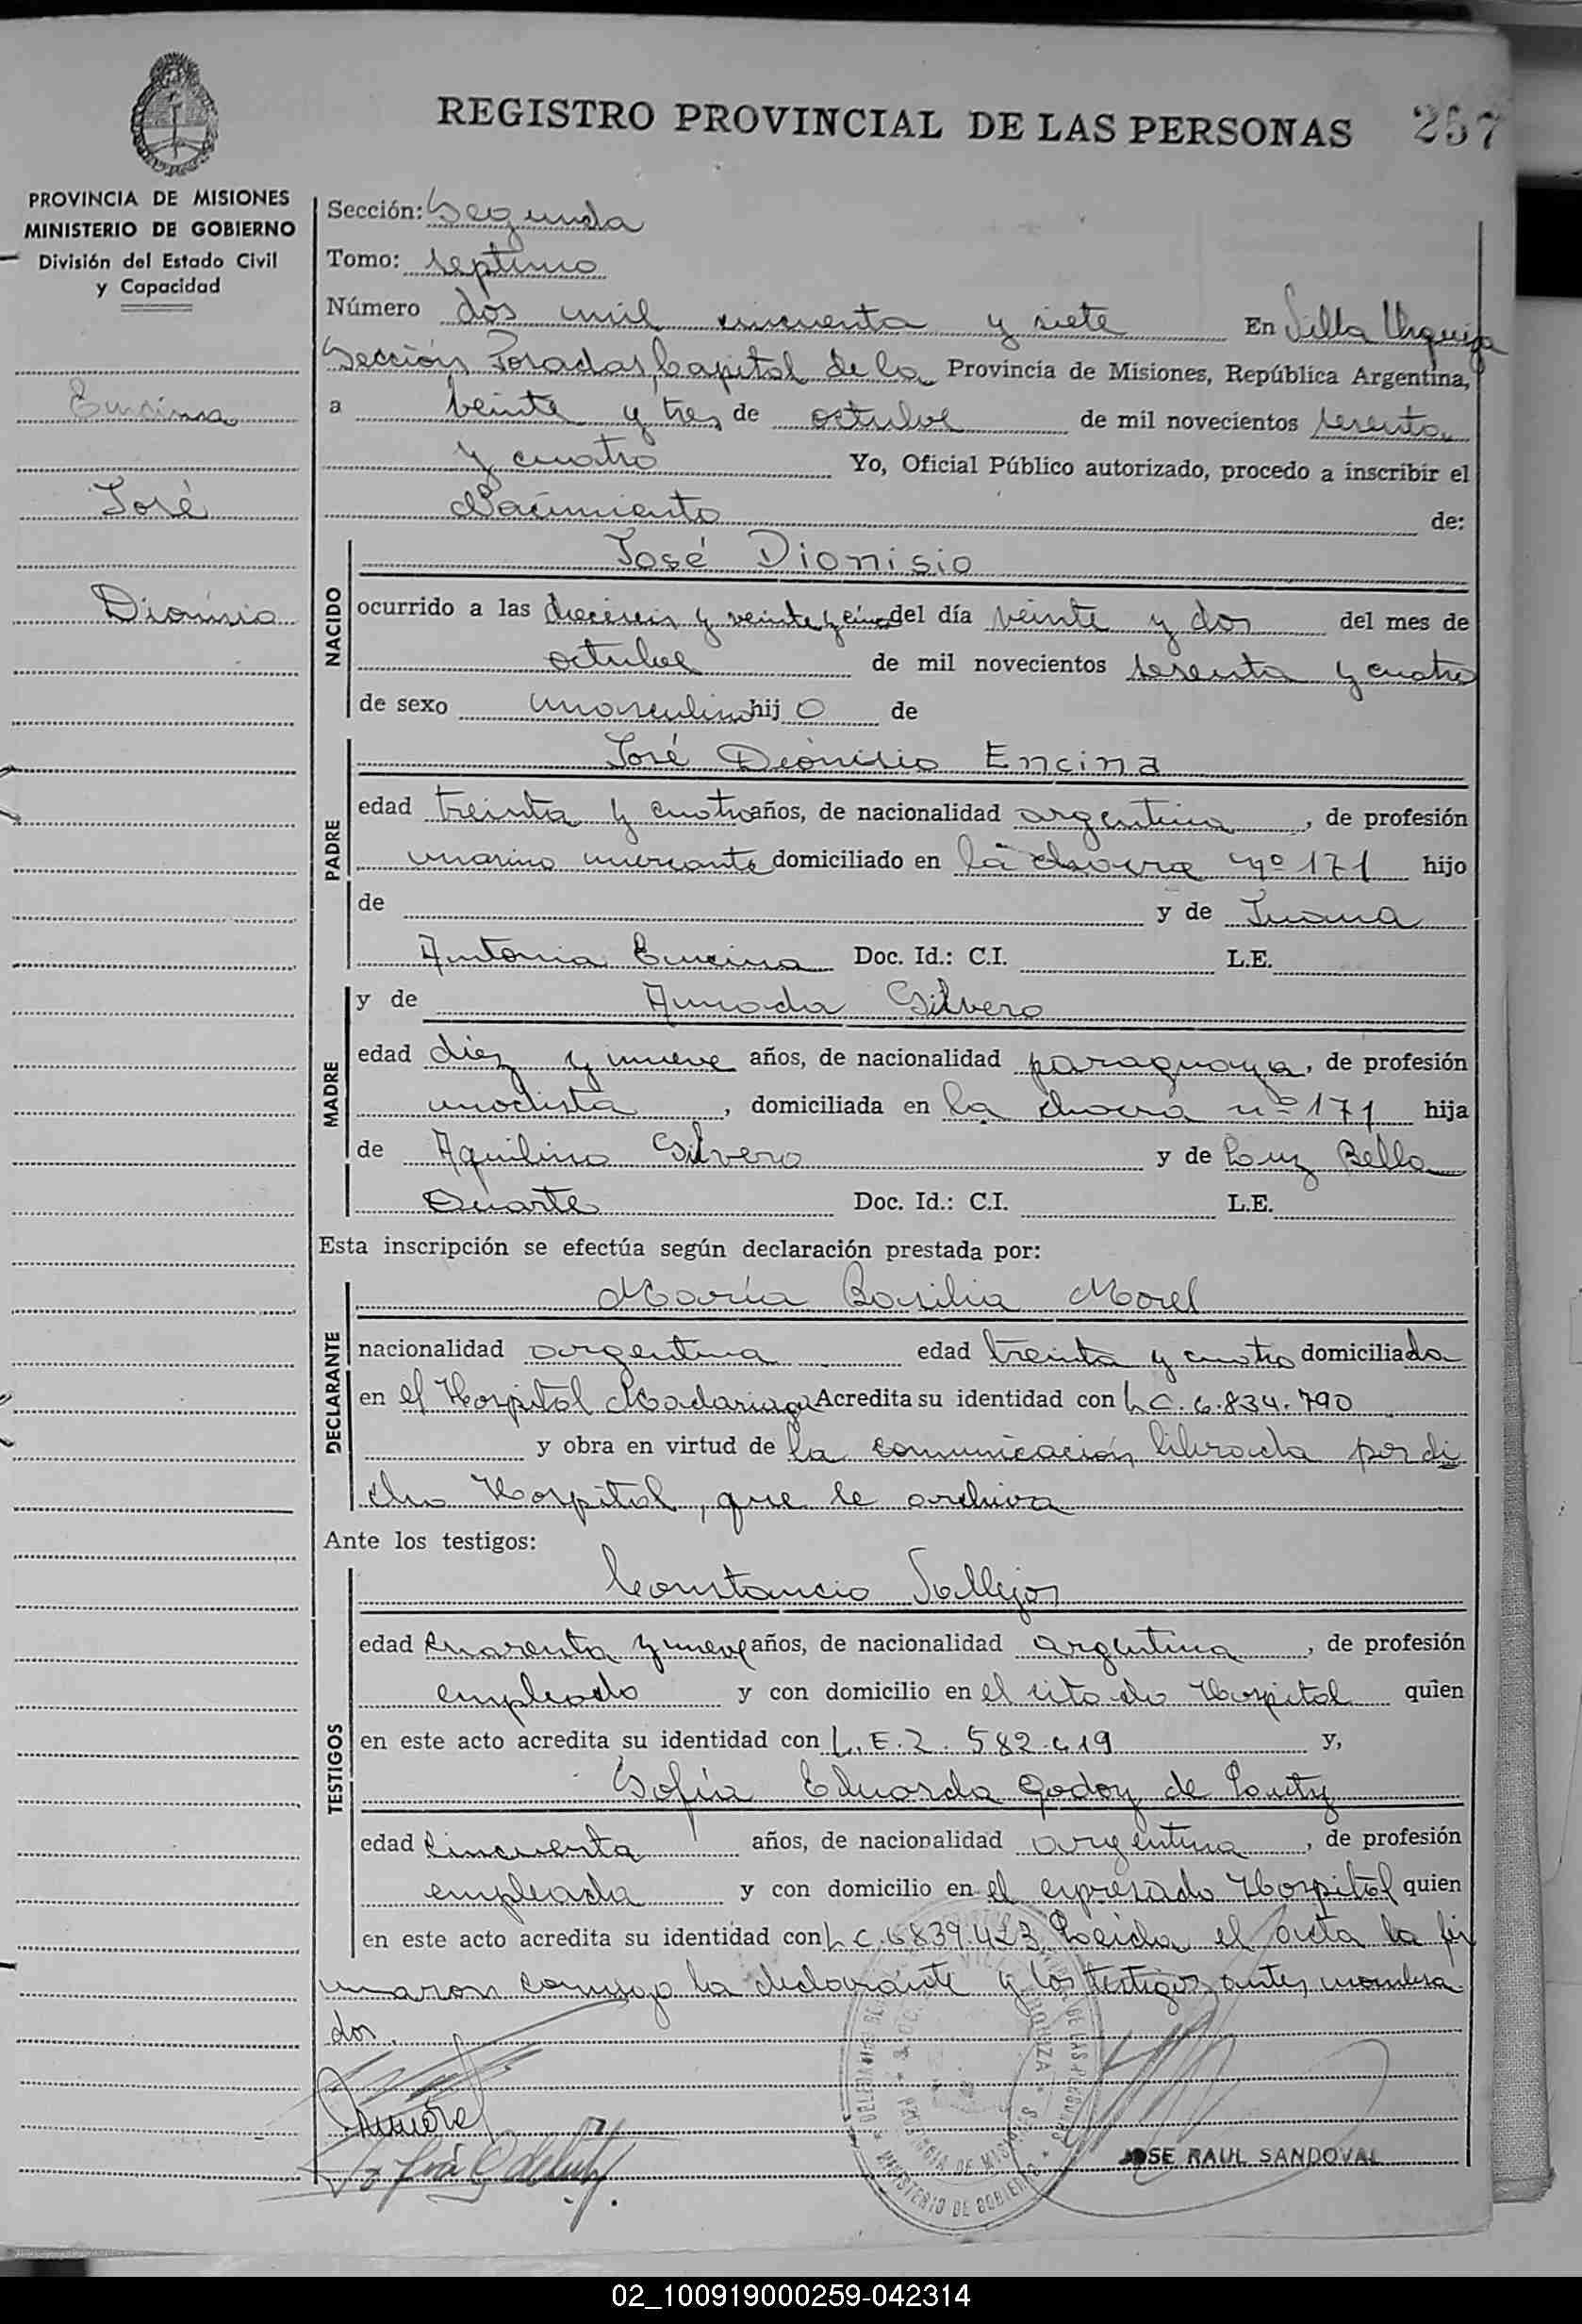 REGISTRO PROVINCIAL DE LAS PERSONAS 257
PROVINCIA DE MISIONES
MINISTERIO DE GOBIERNO
División del Estado Civil
y Capacidad
Encina
José
Dionisio
Sección: Segunda
Tomo: septimo
Número dos mil cincuenta y siete En Villa Urquiza
Sección Posadas, Capital de la Provincia de Misiones, República Argentina,
a veinte y tres de octubre de mil novecientos sesenta
y cuatro Yo, Oficial Público autorizado, procedo a inscribir el
Nacimiento de:
NACIDO
José Dionisio
ocurrido a las dieciseis y veinte y cinco del día veinte y dos del mes de
octubre de mil novecientos sesenta y cuatro
de sexo masculino hijo de
PADRE
José Dionisio Encina
edad treinta y cuatro años, de nacionalidad argentina, de profesión
marino mercante domiciliado en la chacra nº 171 hijo
de y de Juana
Antonia Encina Doc. Id.: C.I. L.E.
MADRE
y de Amada Silvero
edad diez y nueve años, de nacionalidad paraguaya, de profesión
modista, domiciliada en la chacra nº 171 hija
de Aquilino Silvero y de Luz Bella
Duarte Doc. Id.: C.I. L.E.
Esta inscripción se efectúa según declaración prestada por:
DECLARANTE
María Basilia Morel
nacionalidad argentina edad treinta y cuatro domiciliada
en el Hospital Madariaga Acredita su identidad con L.C. 6.834.790
y obra en virtud de la comunicación librada por di
cho Hospital, que se archiva
Ante los testigos:
TESTIGOS
Constancio Vallejos
edad cuarenta y nueve años, de nacionalidad argentina, de profesión
empleado y con domicilio en el citado Hospital quien
en este acto acredita su identidad con L.E. 2.582.419 y,
Sofía Eduarda Godoy de
edad cincuenta años, de nacionalidad argentina, de profesión
empleada y con domicilio en el expresado Hospital quien
en este acto acredita su identidad con L.C. 6839.423 Leída el acta la fir
maron conmigo la declarante y los testigos antes nombra
dos.
JOSE RAUL SANDOVAL
02_100919000259-042314